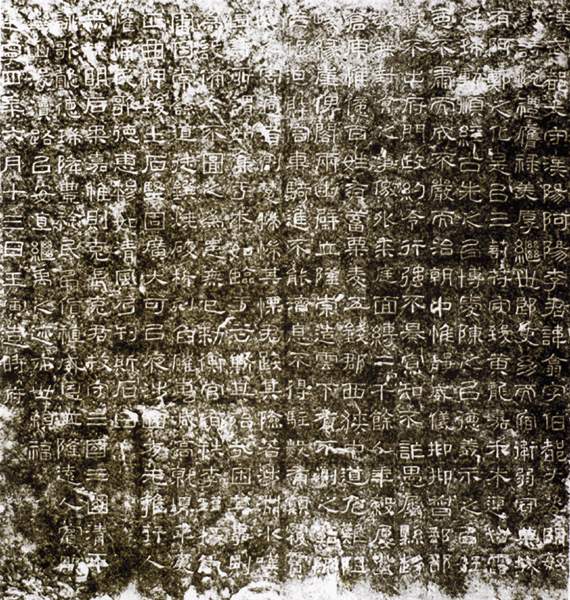 漢武都太守漢陽阿陽李君諱翕字伯都天姿明敏
敦詩悅禮膺祿美厚繼世郎吏幼而宿衛弱冠典城
有阿鄭之化是以三剖符守致黃龍嘉禾木連甘露
之瑞動順經古先之以博愛陳之以德義示之以好
惡不肅而成不嚴而治朝中惟靜威儀抑抑督郵部
職不出府門政約令行強不暴寡知不詐愚屬縣趨
教無對會之事徼外來庭面縛二千餘人年穀屢登
倉庾惟億百姓有蓄粟麥五錢郡西狹中道危難阻
峻緣崖俾閣兩山壁立隆崇造雲下有不測之谿阨
芒促迫財容車騎進不能濟息不得駐數有顛覆霣
隧之害過者創楚惴惴其慄君踐其險若涉淵冰歎
曰詩所謂如集于木如臨于谷斯其殆哉困其事則
為設備今不圖之為患無已敕衡官有秩李瑾掾仇
審因常繇道徒鐉燒破析刻臽磪嵬減高就埤平夷
正曲柙致土石堅固廣大可以夜涉四方无雍行人
懽悀民歌德惠穆如清風乃刊斯石曰
赫赫明后柔嘉惟則克長克君牧守三國三國清平
詠歌懿德瑞降豐稔民以貨稙威恩並隆遠人賓服
鐉山浚瀆路以安直繼禹之迹亦世賴福
建寧四年六月十三日壬寅造時府